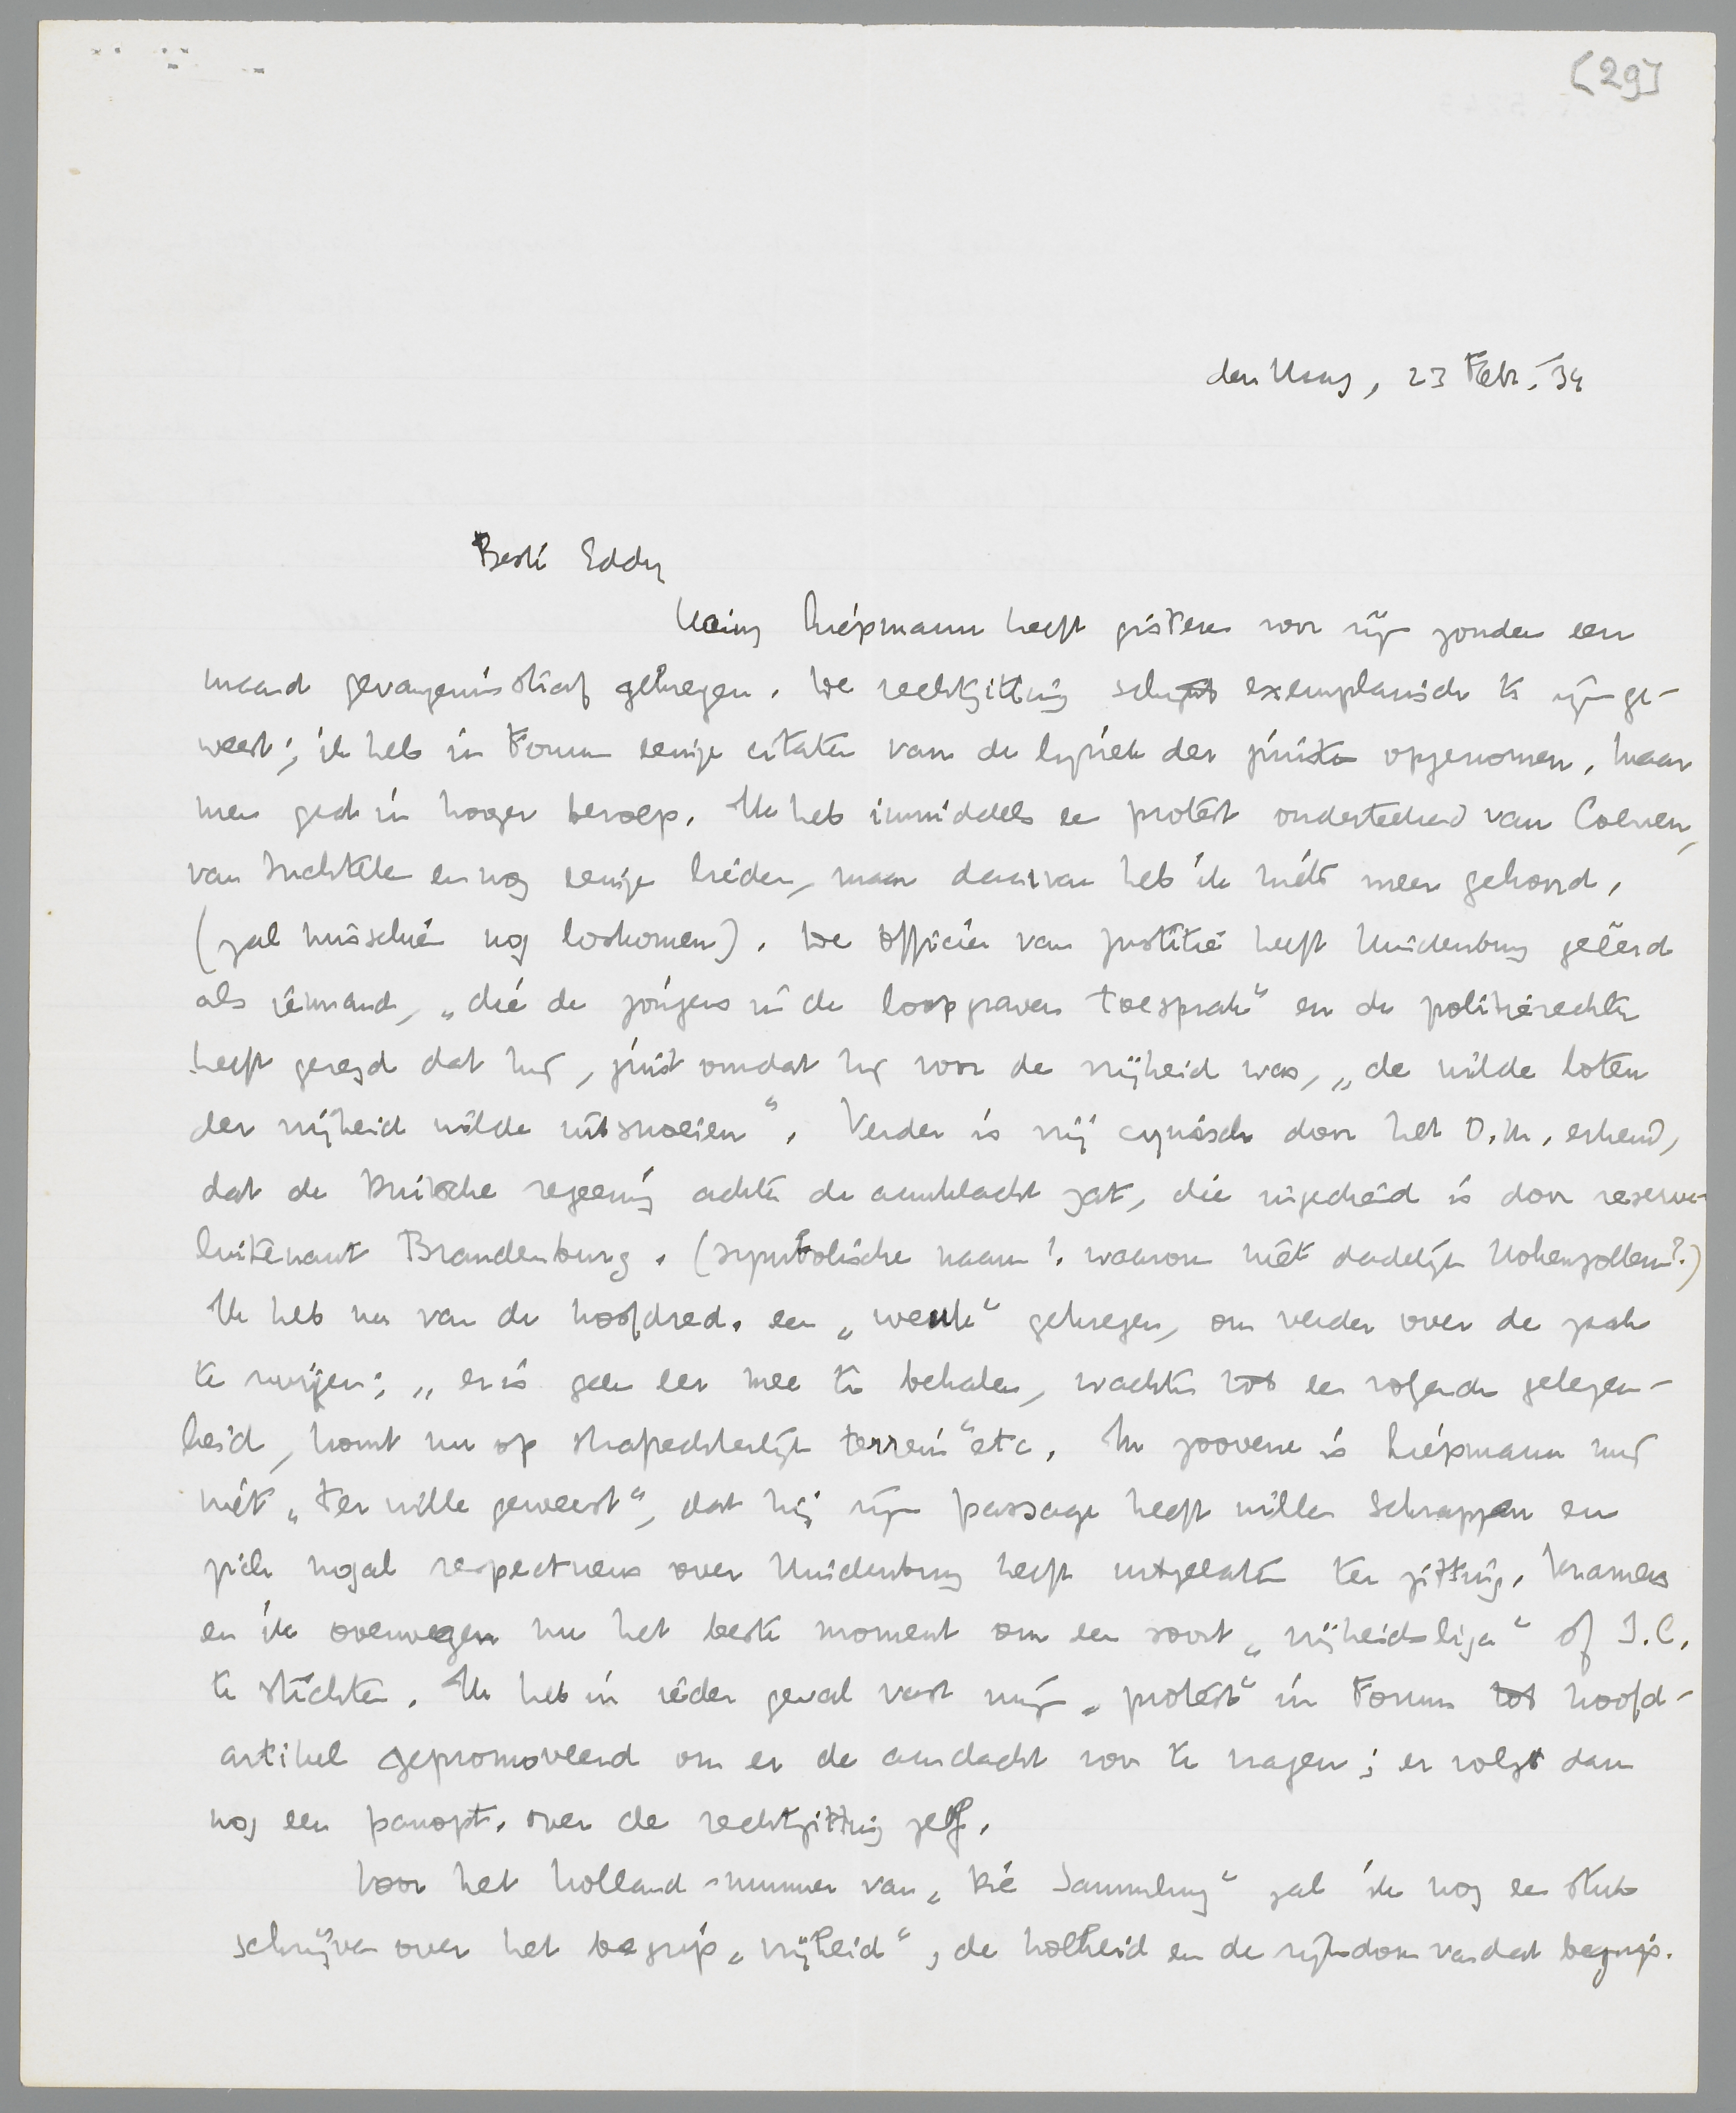 [29]
den Haag, 23 Febr. '34
Beste Eddy
Heinz Liepmann heeft gisteren voor zijn zonden een
maand gevangenisstraf gekregen. De rechtzitting schijnt exemplarisch te zijn ge-
weest; ik heb in Forum eenige citaten van de lyriek der juristen opgenomen. Maar
men gaat in hooger beroep. Ik heb inmiddels een protest onderteekend van Coenen,
van Suchtelen en nog eenige lieden, maar daarvan heb ik niets meer gehoord,
(zal misschien nog loskomen). De officier van justitie heeft Hindenburg geëerd
als iemand, „die de jongens in de loopgraven toesprak" en de politierechter
heeft gezegd dat hij, juist omdat hij voor de vrijheid was, „de wilde loten
der vrijheid wilde uitsnoeien". Verder is vrij cynisch door het O.M. erkend,
dat de Duitsche regeering achter de aanklacht zat, die ingediend is door reserve-
luitenant Brandenburg. (symbolische naam!. waarom niet dadelijk Hohenzollern?)
Ik heb nu van de hoofdred. een „wenk" gekregen, om verder over de zaak
te zwijgen; „er is geen eer mee te behalen, wachten tot een volgende gelegen-
heid, komt nu op strafrechterlijk terrein" etc. In zooverre is Liepmann mij
niet „ter wille geweest", dat hij zijn passage heeft willen schrappen en
zich nogal respectueus over Hindenburg heeft uitgelaten ter zitting. Kramers
en ik overwegen nu het beste moment om een soort „vrijheidsliga" of I.C.
te stichten. Ik heb in ieder geval vast mijn „protest" in Forum tot hoofd-
artikel gepromoveerd om er de aandacht voor te vragen; er volgt dan
nog een panopt. over de rechtzitting zelf.
Voor het Holland-nummer van „Die Sammlung" zal ik nog een stuk
schrijven over het begrip „vrijheid", de holheid en de rijkdom van dat begrip.